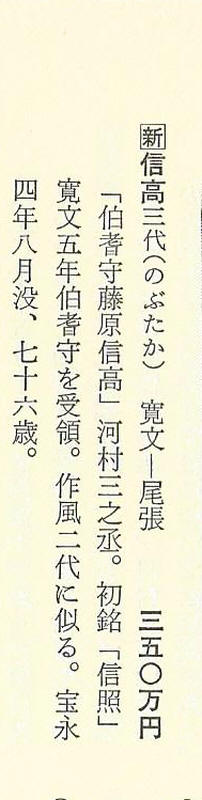 新信高三代(のぶたか) 寛文―尾張 三五〇万円
「伯耆守藤原信高」河村三之丞。初銘「信照」
寛文五年伯耆守を受領。作風二代に似る。宝永
四年八月没、七十六歳。